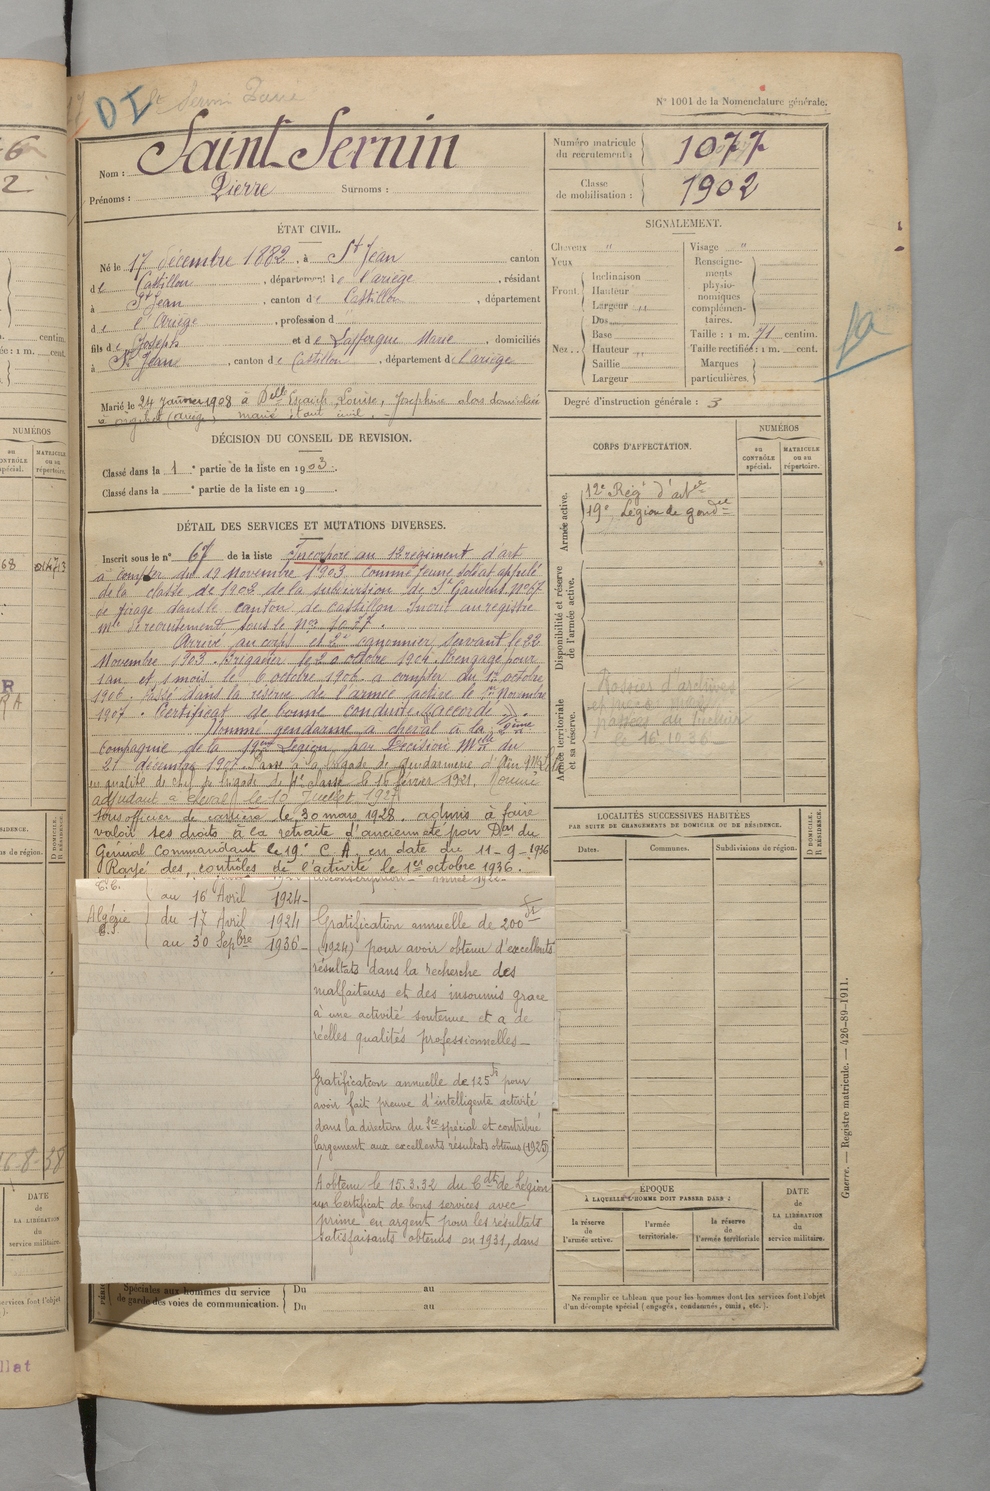 DI
St Sernin Pierre
N° 1001 de la Nomenclature générale.
Nom : Saint-Sernin
Prénoms : Pierre Surnoms :
Numéro matricule du recrutement : 1077
Classe de mobilisation : 1902
ÉTAT CIVIL.
Né le 17 décembre 1882, à St Jean, canton
de Castillon, département de l'Ariège, résidant
à St Jean, canton de Castillon, département
de l'Ariège, profession d
fils de Joseph et de Lafforgue Marie, domiciliés
à St Jean, canton de Castillon, département de l'Ariège
Marié le 24 Janvier 1908 à Delle Louise, Joséphine alors domiciliée
à (Ariège) marié étant civil. -
DÉCISION DU CONSEIL DE REVISION.
Classé dans la 1e partie de la liste en 1903.
Classé dans la e partie de la liste en 19 .
DÉTAIL DES SERVICES ET MUTATIONS DIVERSES.
Inscrit sous le n° 67 de la liste Incorporé au 12 régiment d'art
à compter du 12 Novembre 1903 comme jeune soldat appelé
de la classe de 1903 de la subdivision de St Gaudens No 67
de tirage dans le canton de Castillon Inscrit au registre
Mle de recrutement sous le No 1077.
Arrivé au corps et 2e canonnier servant le 22
Novembre 1903. Brigadier le 20 octobre 1904. Rengagé pour
1 an et 1 mois le 6 octobre 1906 à compter du 1er octobre
1906. Passé dans la réserve de l'armée active le 1er Novembre
1907. Certificat de bonne conduite "accordé".
Nommé gendarme à cheval à la
Compagnie de la 19eme Légion par Décision Mlle du
21 décembre 1907. Passé à la brigade de gendarmerie d'
en qualité de chef de brigade de 4e classe le 16 février 1921. Nommé
adjudant à cheval le 10 Juillet 1927
Sous officier de carrière le 30 mars 1928. admis à faire
valoir ses droits à la retraite d'ancienneté par Don du
Général Commandant le 19e C. A. en date du 11-9-1936
Rayé des contrôles de l'activité le 1er octobre 1936.
au 16 Avril 1924-
Algérie du 17 Avril 1924
au 30 Sepbre 1936-
Gratification annuelle de 200 Fr
(1924) pour avoir obtenu d'excellents
résultats dans la recherche des
malfaiteurs et des insoumis grace
à une activité soutenue et a de
réelles qualités professionnelles-
Gratification annuelle de 125 fr pour
avoir fait preuve d'intelligente activité
dans la direction du Sce spécial et contribué
largement aux excellents résultats obtenus (1925)
A obtenu le 15.3.32 du Cdt de Légion
un Certificat de bons services avec
prime en argent pour les résultats
satisfaisants obtenus en 1931, dans
Spéciales aux hommes du service de garde des voies de communication. Du au
Du au
SIGNALEMENT.
Cheveux "
Yeux
Front Inclinaison
Hauteur
Largeur "
Nez Dos
Base
Hauteur "
Saillie
Largeur
Visage "
Renseignements physionomiques complémentaires.
Taille : 1 m. 71 centim.
Taille rectifiée : 1 m. cent.
Marques particulières.
Degré d'instruction générale : 3
CORPS D'AFFECTATION.
NUMÉROS
au CONTRÔLE spécial.
MATRICULE ou au répertoire.
Armée active.
12e Régt d'artie
19e Légion de gendie
Disponibilité et réserve de l'armée active.
Armée territoriale et sa réserve.
Dossier d'archives
et pièces
passées au fichier
le 16.10.36
LOCALITÉS SUCCESSIVES HABITÉES
PAR SUITE DE CHANGEMENTS DE DOMICILE OU DE RÉSIDENCE.
Dates. Communes. Subdivisions de région.
D DOMICILE. R RÉSIDENCE.
ÉPOQUE
À LAQUELLE L'HOMME DOIT PASSER DANS :
la réserve de l'armée active. l'armée territoriale. la réserve de l'armée territoriale
DATE de LA LIBÉRATION du service militaire.
Ne remplir ce tableau que pour les hommes dont les services font l'objet
d'un décompte spécial (engagés, condamnés, omis, etc.).
Guerre. — Registre matricule. — 426-89-1911.